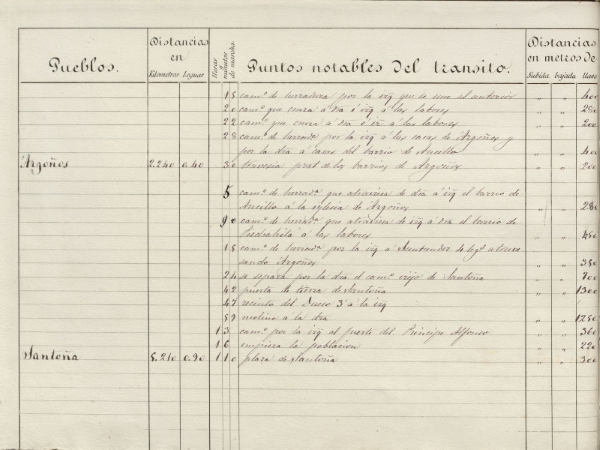 Pueblos. Distancias en Kilometros Leguas Horas minutos de marcha Puntos notables del transito. Distancias en metros de Subida bajada llano
15 cam.º de herradura por la izq que se une al anterior " " 400
20 cam.º que cruza á dra é izq á las labores " " 250
22 cam.º que cruza á dra é iz á las labores " " 200
28 cam.º de herrad.ª por la izq á las casas de Argoños y
por la dra á casas del barrio de Ancillo " " 400
Argoños 2.240 0.40 30 travesia prol de los barrios de Argoños " " 200
5 cam.º de herrad.ª que atraviesa de dra á izq el barrio de
Ancillo á la iglesia de Argoños " " 280
90 cam.º de herrad.ª que atraviesa de izq á dra el barrio de
Piedrahita á las labores " " 450
15 cam.º de herrad.ª por la izq á Santander 4 leg.s atrave
sando Argoños " " 350
24 se separa por la dra el cam.º viejo de Santoña " " 700
42 puerta de tierra de Santoña " " 1300
47 recinto del Dueso 3º á la izq " "
57 molino a la dra " " 1250
1 3 cam.º por la izq al fuerte del Principe Alfonso " " 360
1 6 empieza la poblacion " " 220
Santoña 5.210 0.90 1 10 plaza de Santoña " " 300